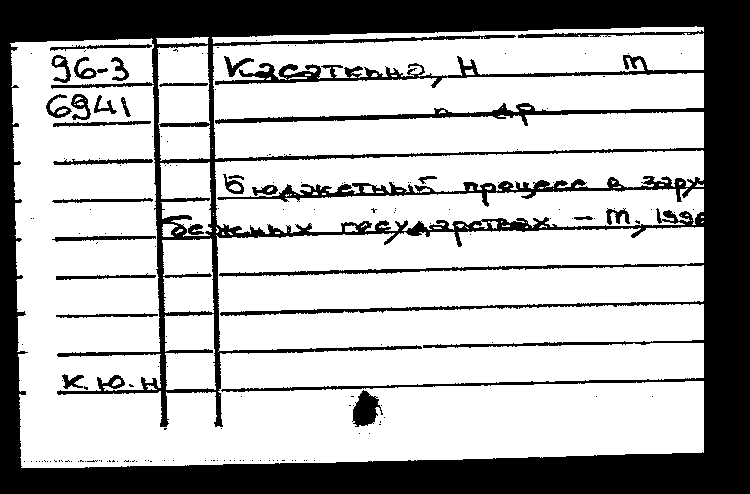 96-3 Касаткина, Н М
6941 и др
Бюджетный процесс в зару-
бежных государствах. - М., 1996
К.Ю.Н